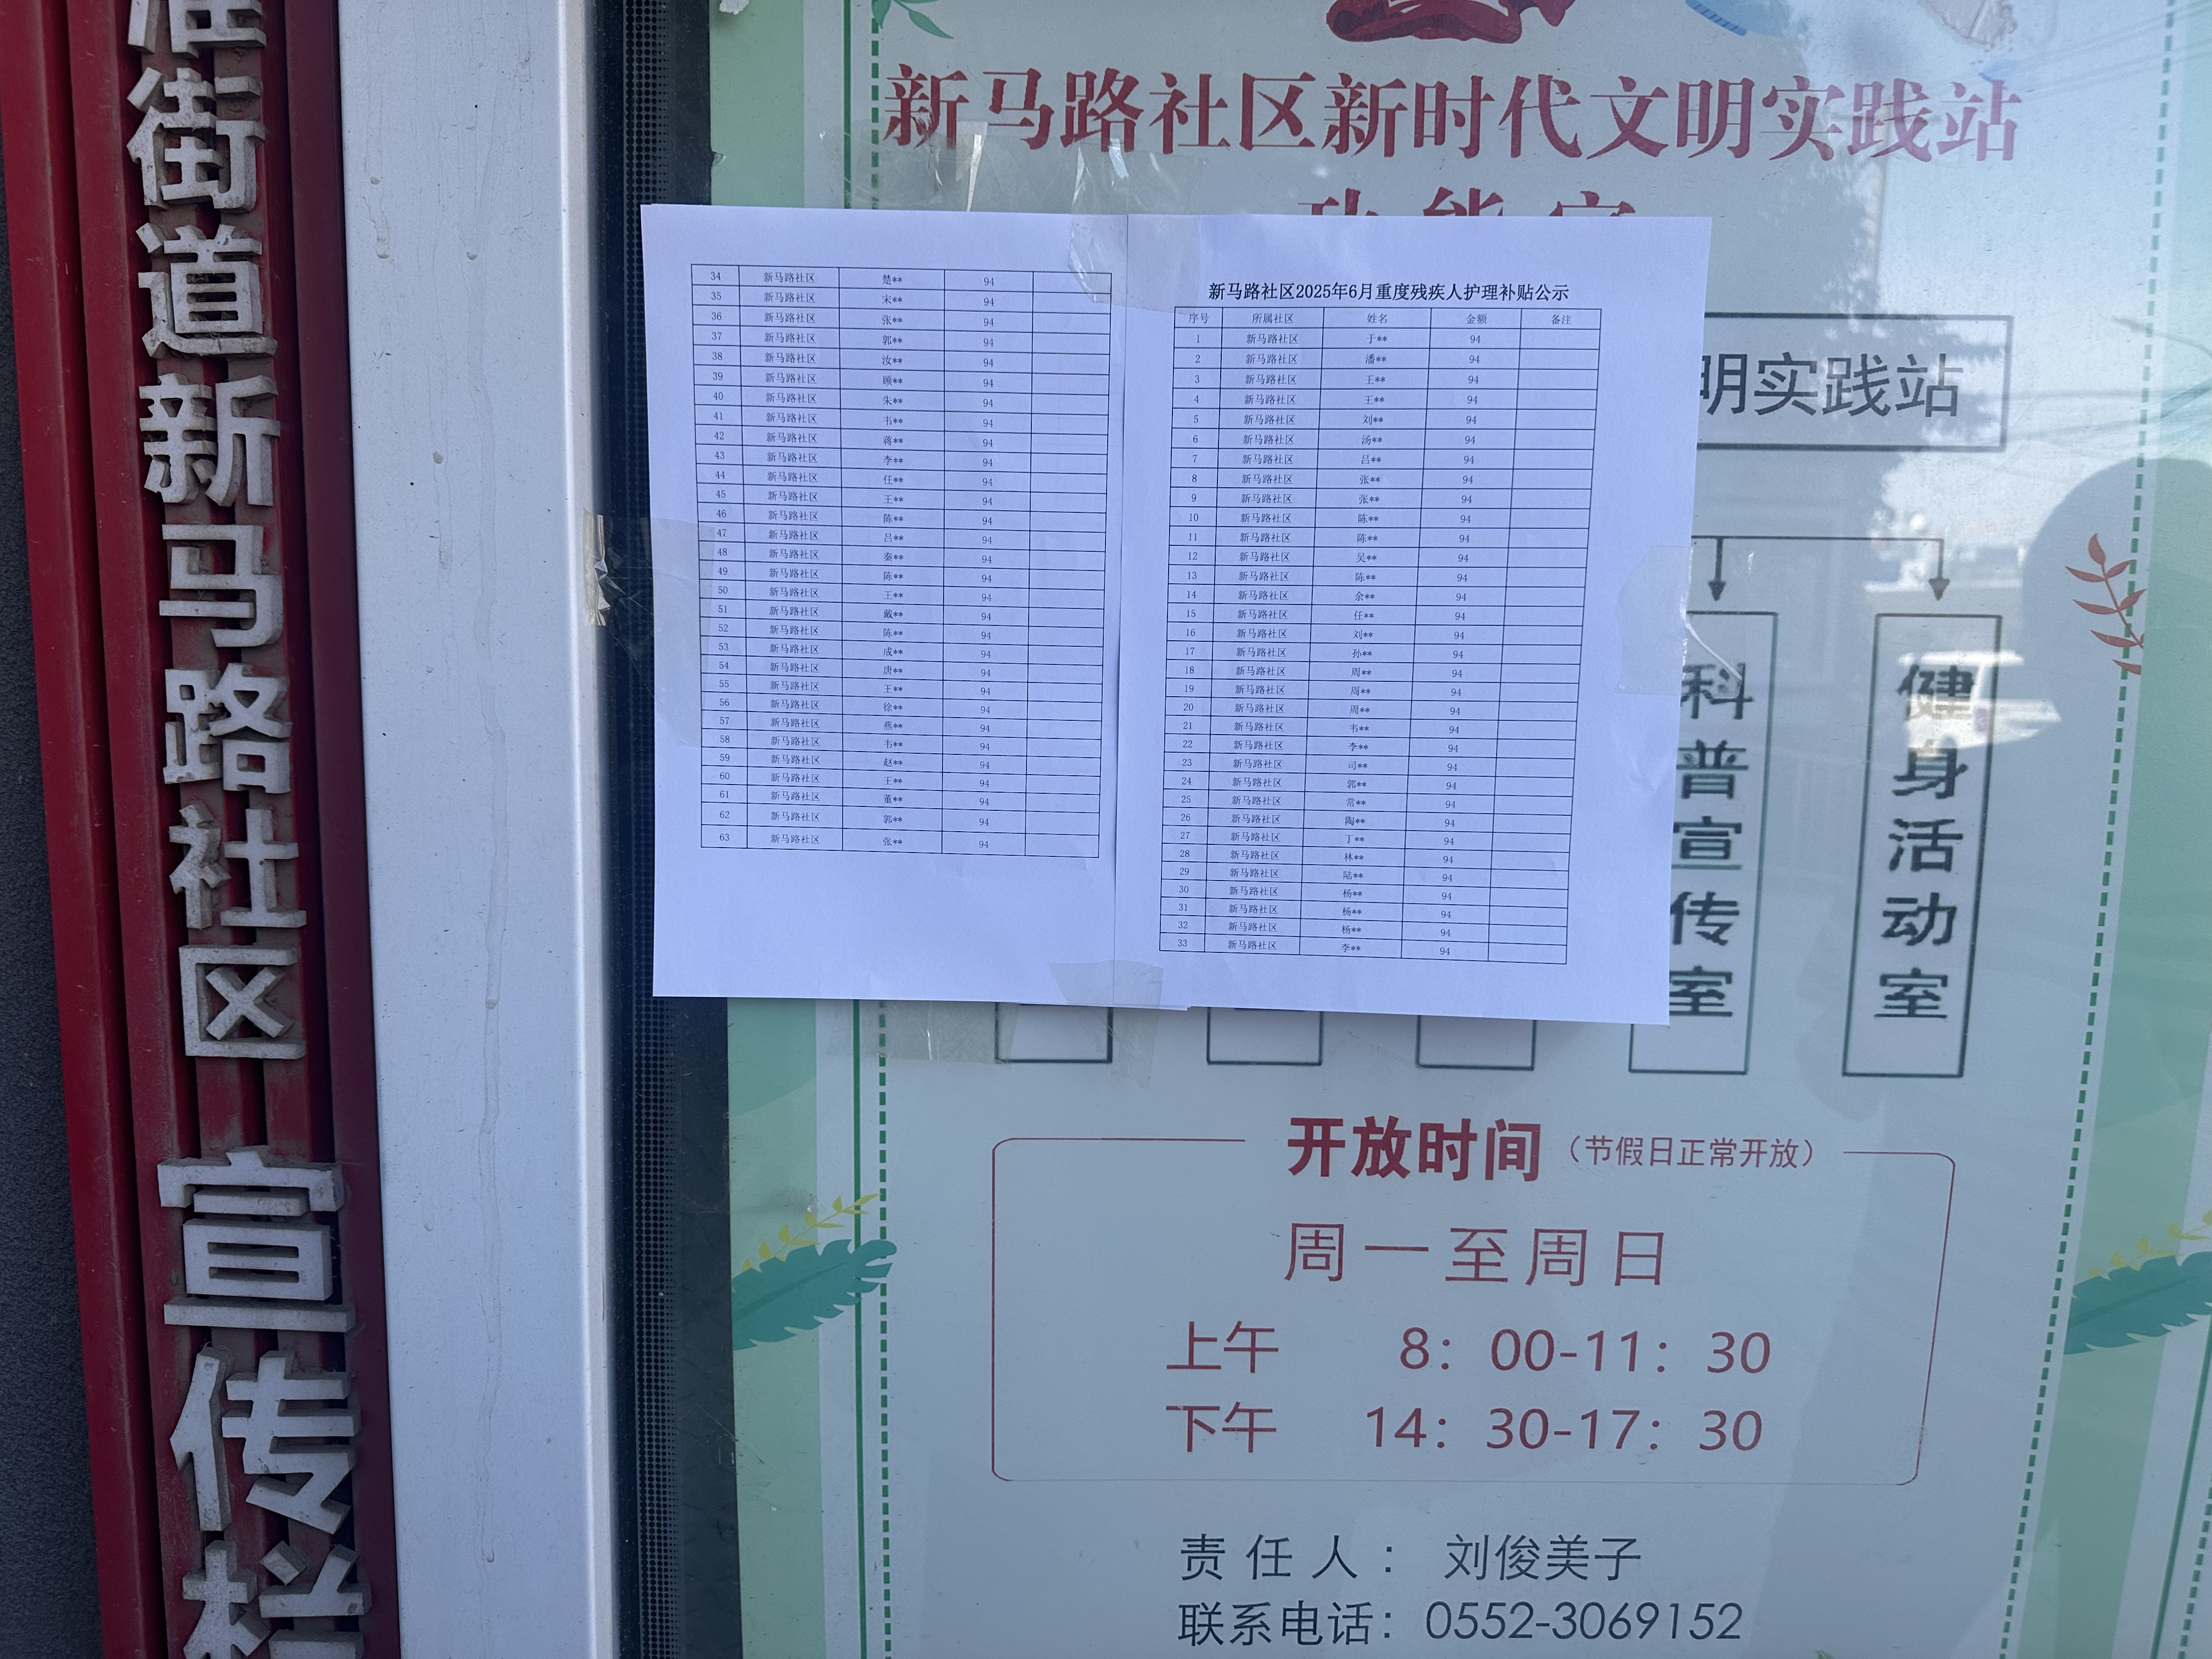 街道新马路社区 宣传栏
新马路社区新时代文明实践站
34 新马路社区 楚** 94
35 新马路社区 宋** 94
36 新马路社区 张** 94
37 新马路社区 郭** 94
38 新马路社区 汝** 94
39 新马路社区 顾** 94
40 新马路社区 朱** 94
41 新马路社区 韦** 94
42 新马路社区 蒋** 94
43 新马路社区 李** 94
44 新马路社区 任** 94
45 新马路社区 王** 94
46 新马路社区 陈** 94
47 新马路社区 吕** 94
48 新马路社区 秦** 94
49 新马路社区 陈** 94
50 新马路社区 王** 94
51 新马路社区 戴** 94
52 新马路社区 陈** 94
53 新马路社区 成** 94
54 新马路社区 唐** 94
55 新马路社区 王** 94
56 新马路社区 徐** 94
57 新马路社区 燕** 94
58 新马路社区 韦** 94
59 新马路社区 赵** 94
60 新马路社区 王** 94
61 新马路社区 董** 94
62 新马路社区 郭** 94
63 新马路社区 张** 94
新马路社区2025年6月重度残疾人护理补贴公示
序号 所属社区 姓名 金额 备注
1 新马路社区 于** 94
2 新马路社区 潘** 94
3 新马路社区 王** 94
4 新马路社区 王** 94
5 新马路社区 刘** 94
6 新马路社区 汤** 94
7 新马路社区 吕** 94
8 新马路社区 张** 94
9 新马路社区 张** 94
10 新马路社区 陈** 94
11 新马路社区 陈** 94
12 新马路社区 吴** 94
13 新马路社区 陈** 94
14 新马路社区 余** 94
15 新马路社区 任** 94
16 新马路社区 刘** 94
17 新马路社区 孙** 94
18 新马路社区 周** 94
19 新马路社区 周** 94
20 新马路社区 周** 94
21 新马路社区 韦** 94
22 新马路社区 李** 94
23 新马路社区 司** 94
24 新马路社区 郭** 94
25 新马路社区 常** 94
26 新马路社区 陶** 94
27 新马路社区 丁** 94
28 新马路社区 林** 94
29 新马路社区 陆** 94
30 新马路社区 杨** 94
31 新马路社区 杨** 94
32 新马路社区 杨** 94
33 新马路社区 李** 94
明实践站
科普宣传室
健身活动室
开放时间（节假日正常开放）
周一至周日
上午 8：00-11：30
下午 14：30-17：30
责任人：刘俊美子
联系电话：0552-3069152